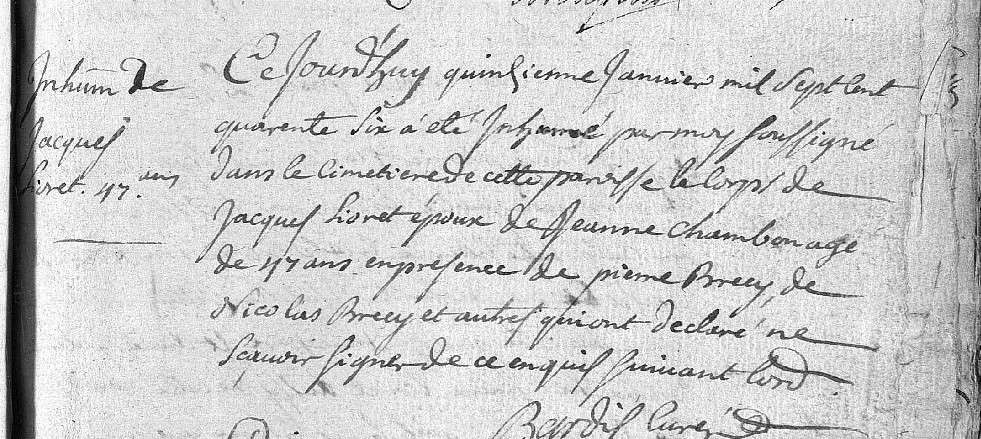 Inhum de
Jacques
Lioret 47 ans
Ce Jourd'huy quinzienne Janvier mil Sept Cent
quarente Six á eté Inhumé par moy Soussigné
Dans le Cimetiere de cette paroisse le Corps de
Jacques Lioret époux de Jeanne Chambon agé
de 47 ans en presence de pierre Brecy, de
Nicolas Brecy et autres qui ont declaré ne
Sçavoir Signer de ce enquis Suivant Lord
Bardis Curé